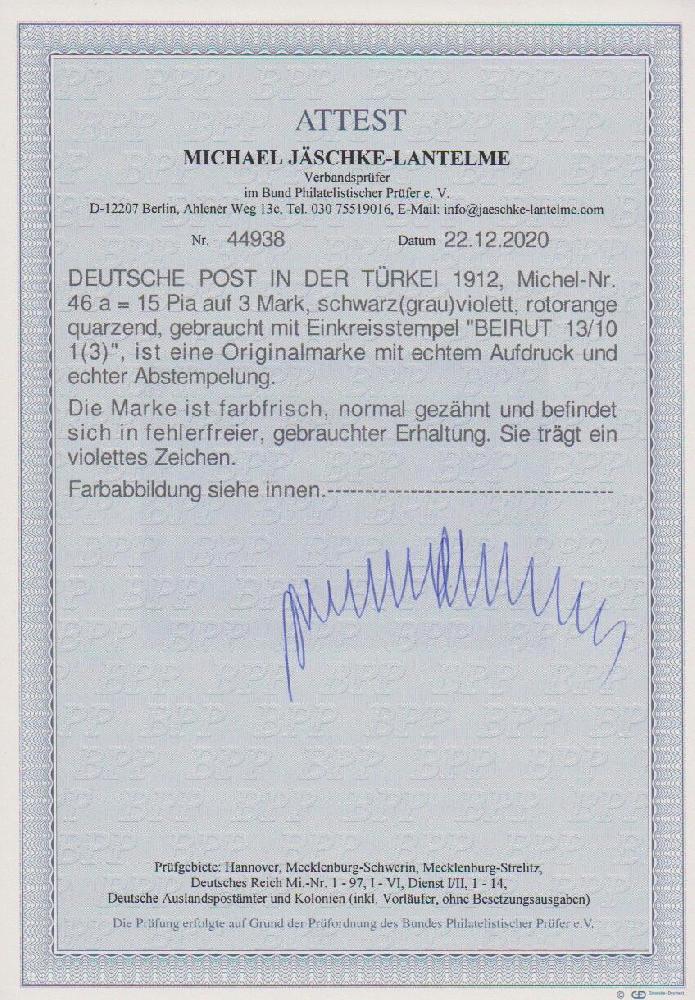 ATTEST
MICHAEL JÄSCHKE-LANTELME
Verbandsprüfer
im Bund Philatelistischer Prüfer e. V.
D-12207 Berlin, Ahlener Weg 13c, Tel. 030 75519016, E-Mail: info@jaeschke-lantelme.com
Nr. 44938 Datum 22.12.2020
DEUTSCHE POST IN DER TÜRKEI 1912, Michel-Nr.
46 a = 15 Pia auf 3 Mark, schwarz(grau)violett, rotorange
quarzend, gebraucht mit Einkreisstempel "BEIRUT 13/10
1(3)", ist eine Originalmarke mit echtem Aufdruck und
echter Abstempelung.
Die Marke ist farbfrisch, normal gezähnt und befindet
sich in fehlerfreier, gebrauchter Erhaltung. Sie trägt ein
violettes Zeichen.
Farbabbildung siehe innen.--------------------------------------
Prüfgebiete: Hannover, Mecklenburg-Schwerin, Mecklenburg-Strelitz,
Deutsches Reich Mi.-Nr. 1 - 97, I - VI, Dienst I/II, 1 - 14,
Deutsche Auslandspostämter und Kolonien (inkl. Vorläufer, ohne Besetzungsausgaben)
Die Prüfung erfolgte auf Grund der Prüfordnung des Bundes Philatelistischer Prüfer e.V.